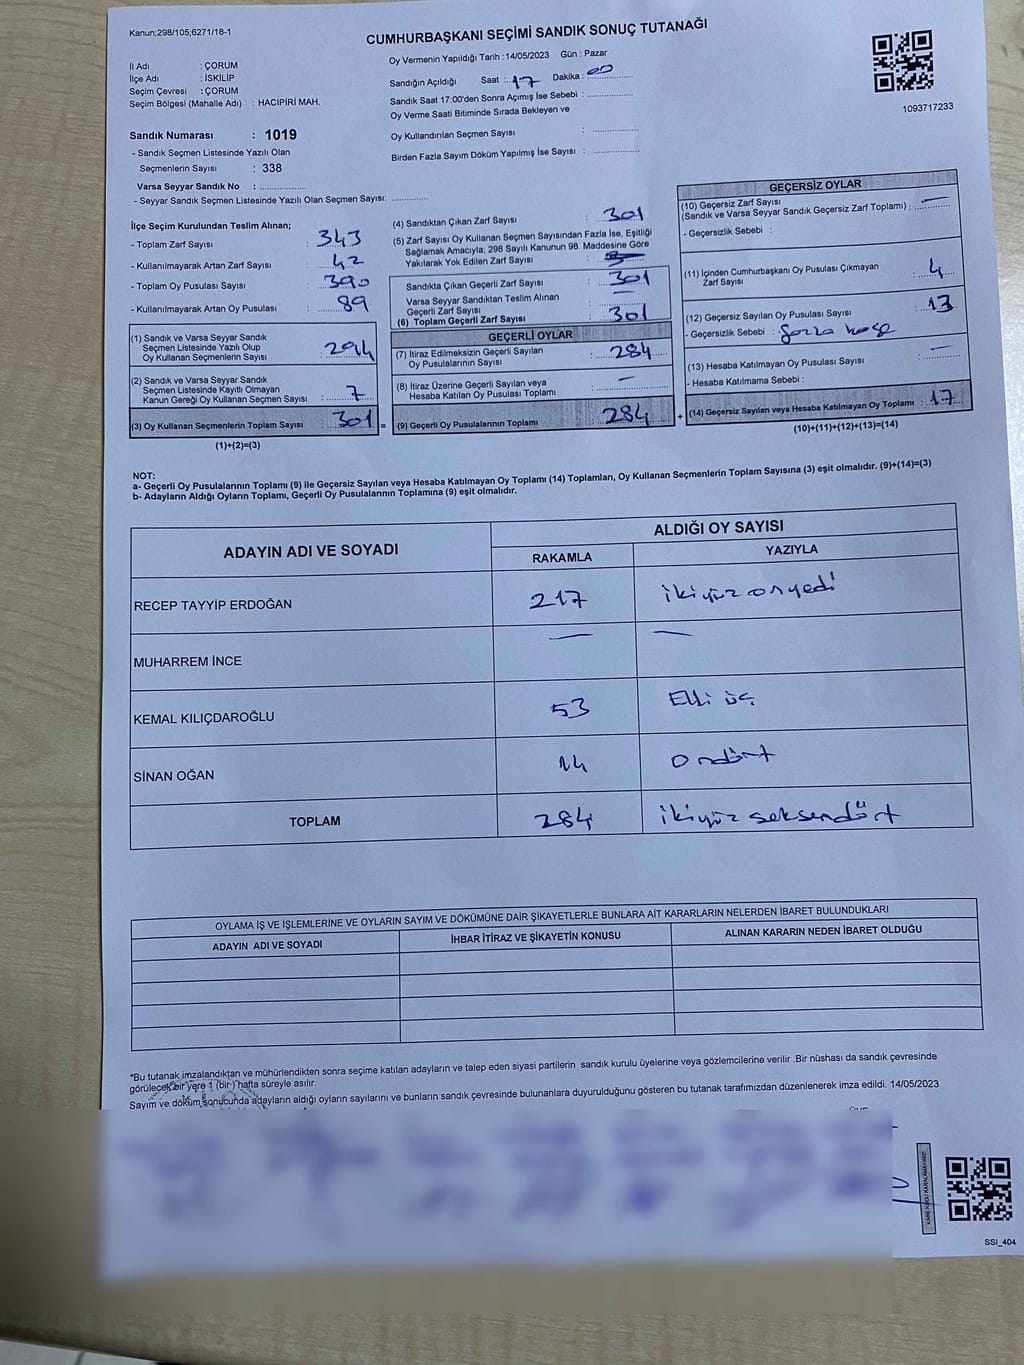 Kanun;298/105;6271/18-1
CUMHURBAŞKANI SEÇİMİ SANDIK SONUÇ TUTANAĞI
İl Adı : ÇORUM
İlçe Adı : İSKİLİP
Seçim Çevresi : ÇORUM
Seçim Bölgesi (Mahalle Adı) : HACIPİRİ MAH.
Oy Vermenin Yapıldığı Tarih : 14/05/2023 Gün : Pazar
Sandığın Açıldığı Saat : 17 Dakika : 00
Sandık Saat 17:00'den Sonra Açımış İse Sebebi :
Oy Verme Saati Bitiminde Sırada Bekleyen ve
Oy Kullandırılan Seçmen Sayısı :
Birden Fazla Sayım Döküm Yapılmış İse Sayısı :
1093717233
Sandık Numarası : 1019
- Sandık Seçmen Listesinde Yazılı Olan
Seçmenlerin Sayısı : 338
Varsa Seyyar Sandık No :
- Seyyar Sandık Seçmen Listesinde Yazılı Olan Seçmen Sayısı:
İlçe Seçim Kurulundan Teslim Alınan;
- Toplam Zarf Sayısı : 343
- Kullanılmayarak Artan Zarf Sayısı : 42
- Toplam Oy Pusulası Sayısı : 390
- Kullanılmayarak Artan Oy Pusulası : 89
(1) Sandık ve Varsa Seyyar Sandık
Seçmen Listesinde Yazılı Olup
Oy Kullanan Seçmenlerin Sayısı : 294
(2) Sandık ve Varsa Seyyar Sandık
Seçmen Listesinde Kayıtlı Olmayan
Kanun Gereği Oy Kullanan Seçmen Sayısı : 7
(3) Oy Kullanan Seçmenlerin Toplam Sayısı : 301 =
(1)+(2)=(3)
(4) Sandıktan Çıkan Zarf Sayısı : 301
(5) Zarf Sayısı Oy Kullanan Seçmen Sayısından Fazla İse, Eşitliği
Sağlamak Amacıyla; 298 Sayılı Kanunun 98. Maddesine Göre
Yakılarak Yok Edilen Zarf Sayısı :
Sandıkta Çıkan Geçerli Zarf Sayısı : 301
Varsa Seyyar Sandıktan Teslim Alınan
Geçerli Zarf Sayısı : —
(6) Toplam Geçerli Zarf Sayısı : 301
GEÇERLİ OYLAR
(7) İtiraz Edilmeksizin Geçerli Sayılan
Oy Pusulalarının Sayısı : 284
(8) İtiraz Üzerine Geçerli Sayılan veya
Hesaba Katılan Oy Pusulası Toplamı : —
(9) Geçerli Oy Pusulalarının Toplamı : 284 +
GEÇERSİZ OYLAR
(10) Geçersiz Zarf Sayısı
(Sandık ve Varsa Seyyar Sandık Geçersiz Zarf Toplamı) : —
- Geçersizlik Sebebi :
(11) İçinden Cumhurbaşkanı Oy Pusulası Çıkmayan
Zarf Sayısı : 4
(12) Geçersiz Sayılan Oy Pusulası Sayısı : 13
- Geçersizlik Sebebi :
(13) Hesaba Katılmayan Oy Pusulası Sayısı : —
- Hesaba Katılmama Sebebi :
(14) Geçersiz Sayılan veya Hesaba Katılmayan Oy Toplamı : 17
(10)+(11)+(12)+(13)=(14)
NOT:
a- Geçerli Oy Pusulalarının Toplamı (9) ile Geçersiz Sayılan veya Hesaba Katılmayan Oy Toplamı (14) Toplamları, Oy Kullanan Seçmenlerin Toplam Sayısına (3) eşit olmalıdır. (9)+(14)=(3)
b- Adayların Aldığı Oyların Toplamı, Geçerli Oy Pusulalarının Toplamına (9) eşit olmalıdır.
ADAYIN ADI VE SOYADI
ALDIĞI OY SAYISI
RAKAMLA YAZIYLA
RECEP TAYYİP ERDOĞAN 217 ikiyüz onyedi
MUHARREM İNCE — —
KEMAL KILIÇDAROĞLU 53 Elli üç
SİNAN OĞAN 14 ondört
TOPLAM 284 ikiyüz seksendört
OYLAMA İŞ VE İŞLEMLERİNE VE OYLARIN SAYIM VE DÖKÜMÜNE DAİR ŞİKAYETLERLE BUNLARA AİT KARARLARIN NELERDEN İBARET BULUNDUKLARI
ADAYIN ADI VE SOYADI İHBAR İTİRAZ VE ŞİKAYETİN KONUSU ALINAN KARARIN NEDEN İBARET OLDUĞU
*Bu tutanak imzalandıktan ve mühürlendikten sonra seçime katılan adayların ve talep eden siyasi partilerin sandık kurulu üyelerine veya gözlemcilerine verilir .Bir nüshası da sandık çevresinde
görülecek bir yere 1 (bir ) hafta süreyle asılır.
Sayım ve döküm sonucunda adayların aldığı oyların sayılarını ve bunların sandık çevresinde bulunanlara duyurulduğunu gösteren bu tutanak tarafımızdan düzenlenerek imza edildi. 14/05/2023
KARE KODU KARALAMAYINIZ!
SSI_404